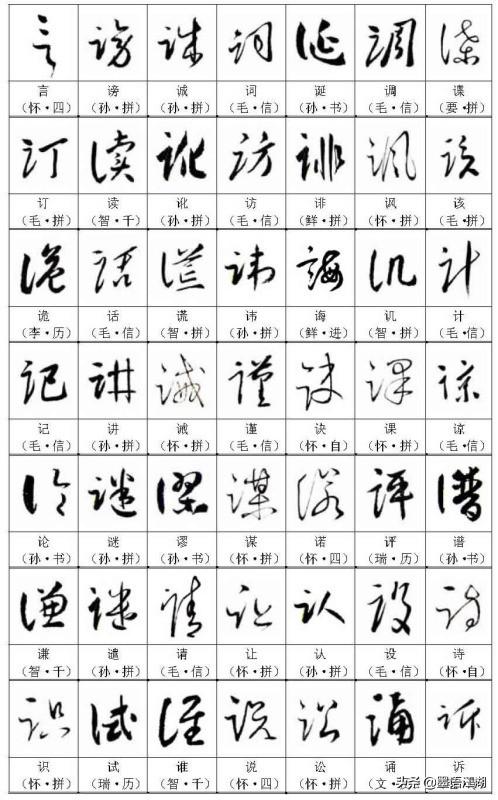 言 谤 诚 词 诞 调 谍
（怀·四） （孙·拼） （孙·拼） （毛·信） （孙·书） （毛·信） （要·拼）
订 读 讹 访 诽 讽 该
（毛·拼） （智·千） （孙·拼） （毛·信） （鲜·拼） （怀·拼） （毛·拼）
诡 话 谎 讳 诲 讥 计
（李·历） （毛·信） （智·拼） （孙·拼） （鲜·进） （智·拼） （毛·信）
记 讲 诫 谨 诀 课 谅
（毛·信） （孙·拼） （怀·拼） （毛·信） （怀·自） （怀·拼） （毛·信）
论 谜 谬 谋 诺 评 谱
（孙·书） （孙·拼） （孙·书） （怀·拼） （怀·四） （瑞·历） （孙·书）
谦 谴 请 让 认 设 诗
（智·千） （孙·拼） （毛·信） （怀·拼） （孙·拼） （毛·信） （怀·自）
识 试 谁 说 讼 诵 诉
（怀·拼） （瑞·历） （智·千） （怀·四） （怀·拼） （文·
头条 @墨语江湖